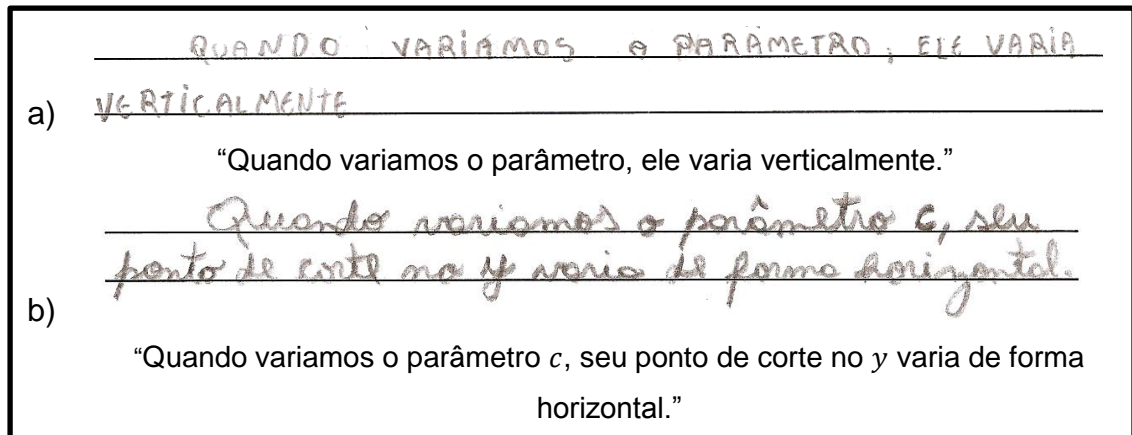 QUANDO VARIAMOS O PARÂMETRO, ELE VARIA
a) VERTICALMENTE
“Quando variamos o parâmetro, ele varia verticalmente.”
Quando variamos o parâmetro c, seu
ponto de corte no y varia de forma horizontal.
b)
“Quando variamos o parâmetro c, seu ponto de corte no y varia de forma
horizontal.”